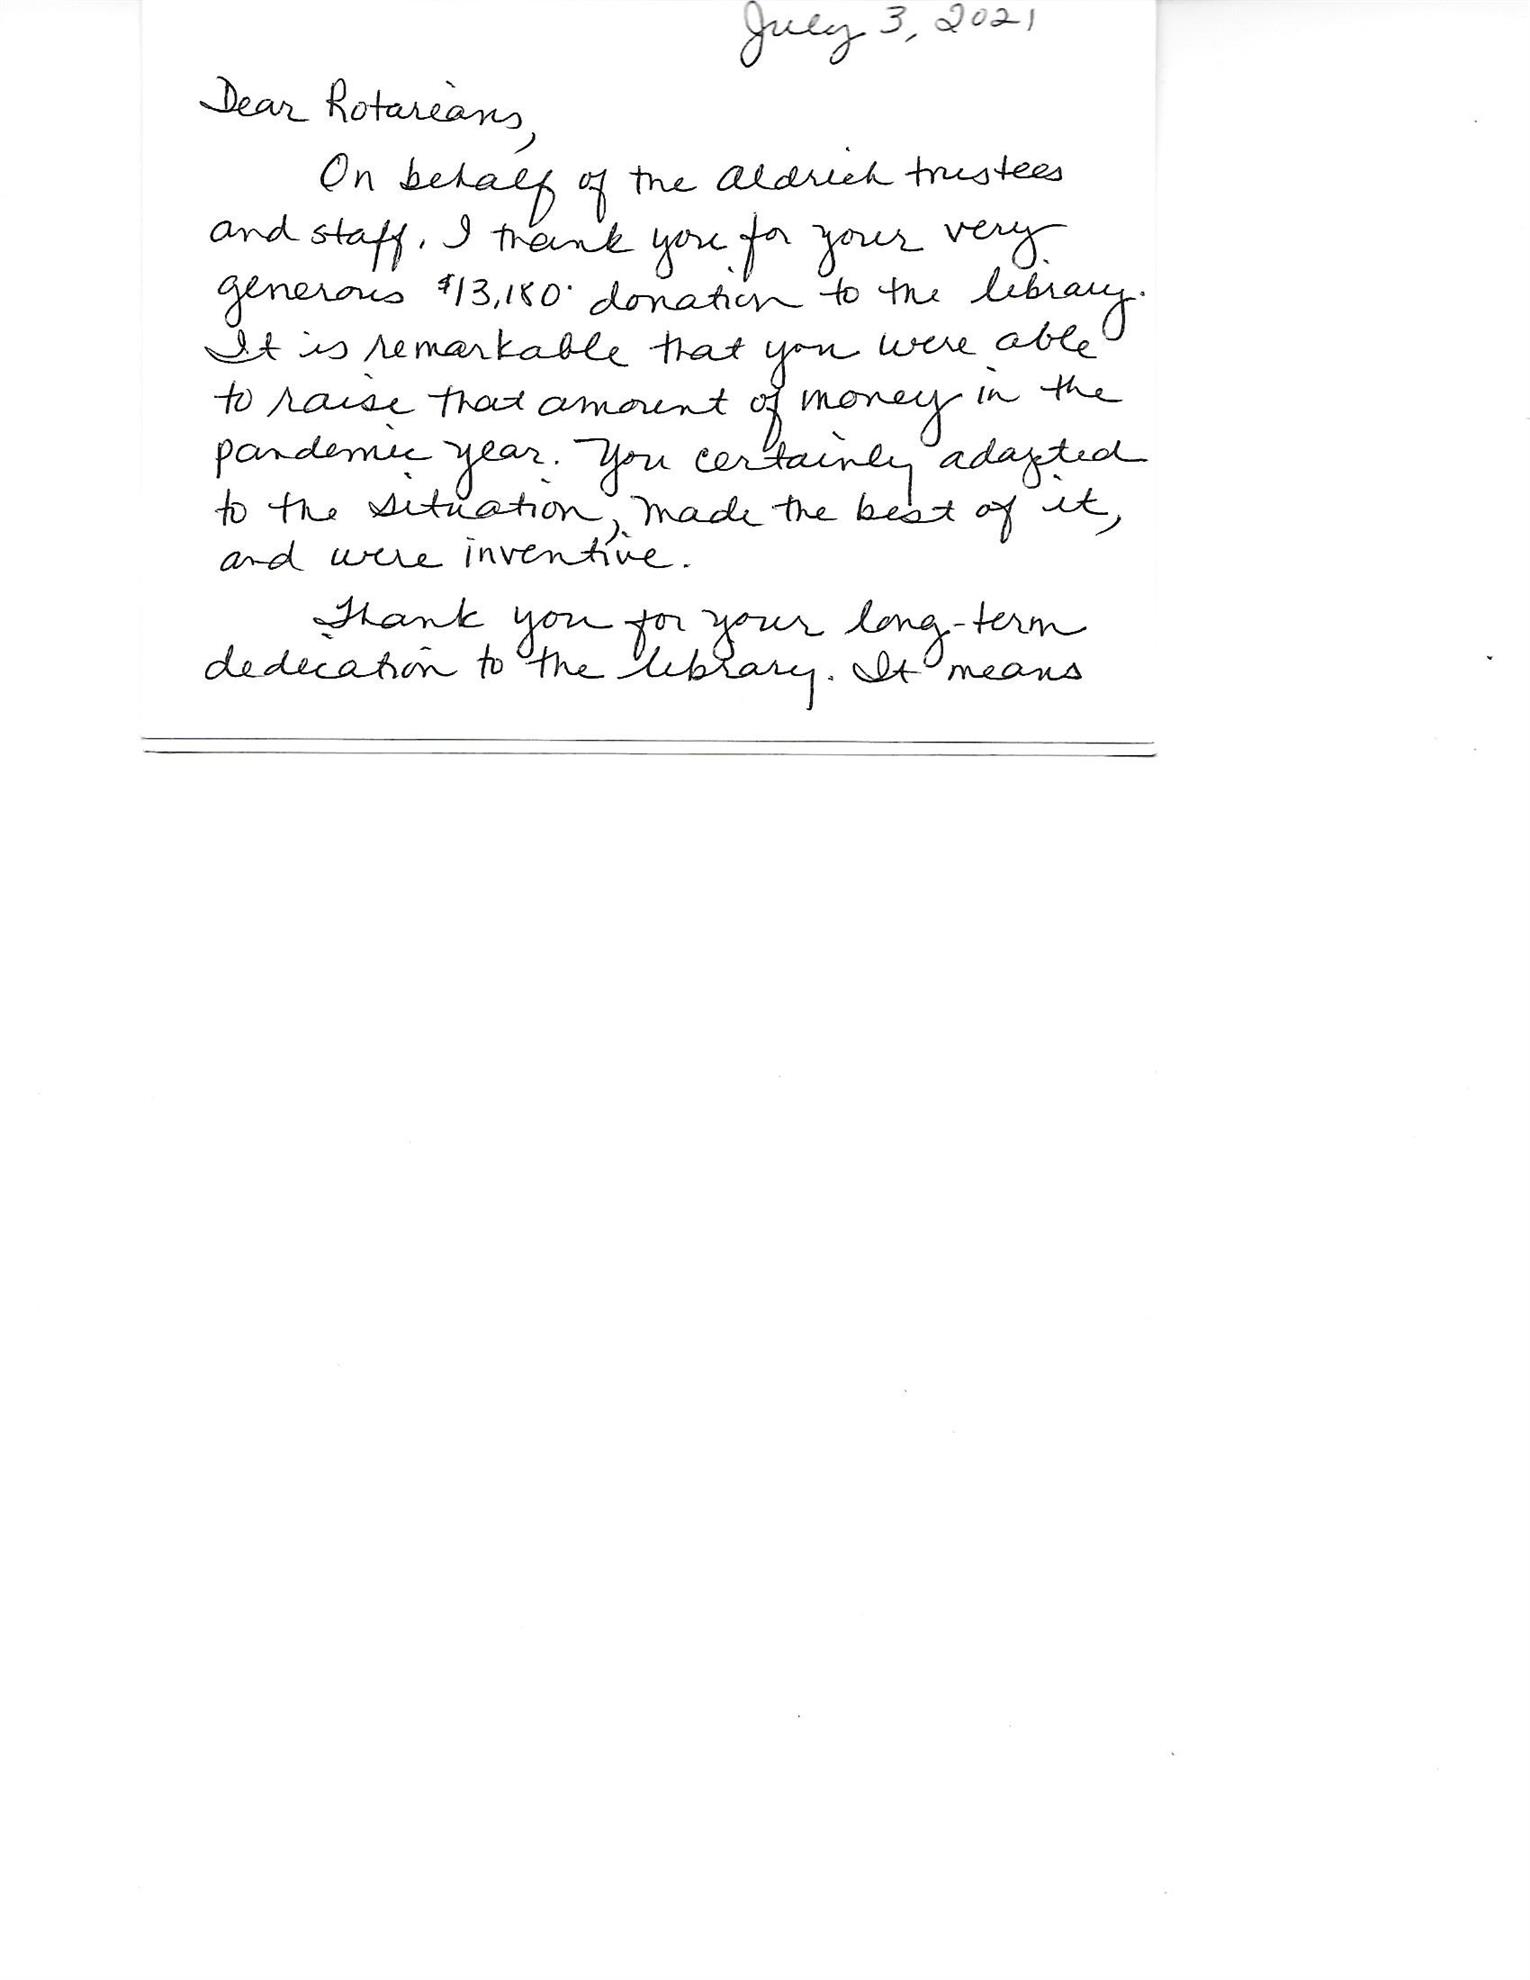 July 3, 2021
Dear Rotarians,
On behalf of the Aldrich trustees
and staff, I thank you for your very
generous $13,180. donation to the library.
It is remarkable that you were able
to raise that amount of money in the
pandemic year. You certainly adapted
to the situation, made the best of it,
and were inventive.
Thank you for your long-term
dedication to the library. It means